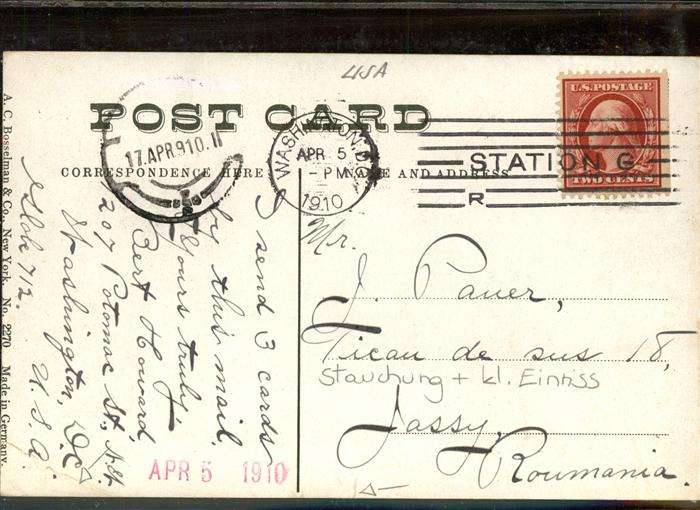 USA
POST CARD
CORRESPONDENCE HERE
NAME AND ADDRESS
17.APR.910.11
WASHINGTON, D.
APR 5
-PM
1910
STATION G
R
U.S. POSTAGE
TWO CENTS
A. C. Bosselman & Co., New York. No. 2270 Made in Germany.
I send 3 cards
by this mail.
Yours truly,
Bert Howard,
207 Potomac St., N.W.
Washington, D.C.
U.S.A.
Globe 712.
Mr.
J. Pauer,
Ticau de sus 18,
Stauchung + kl. Einriss
Jassy,
Roumania.
APR 5 1910